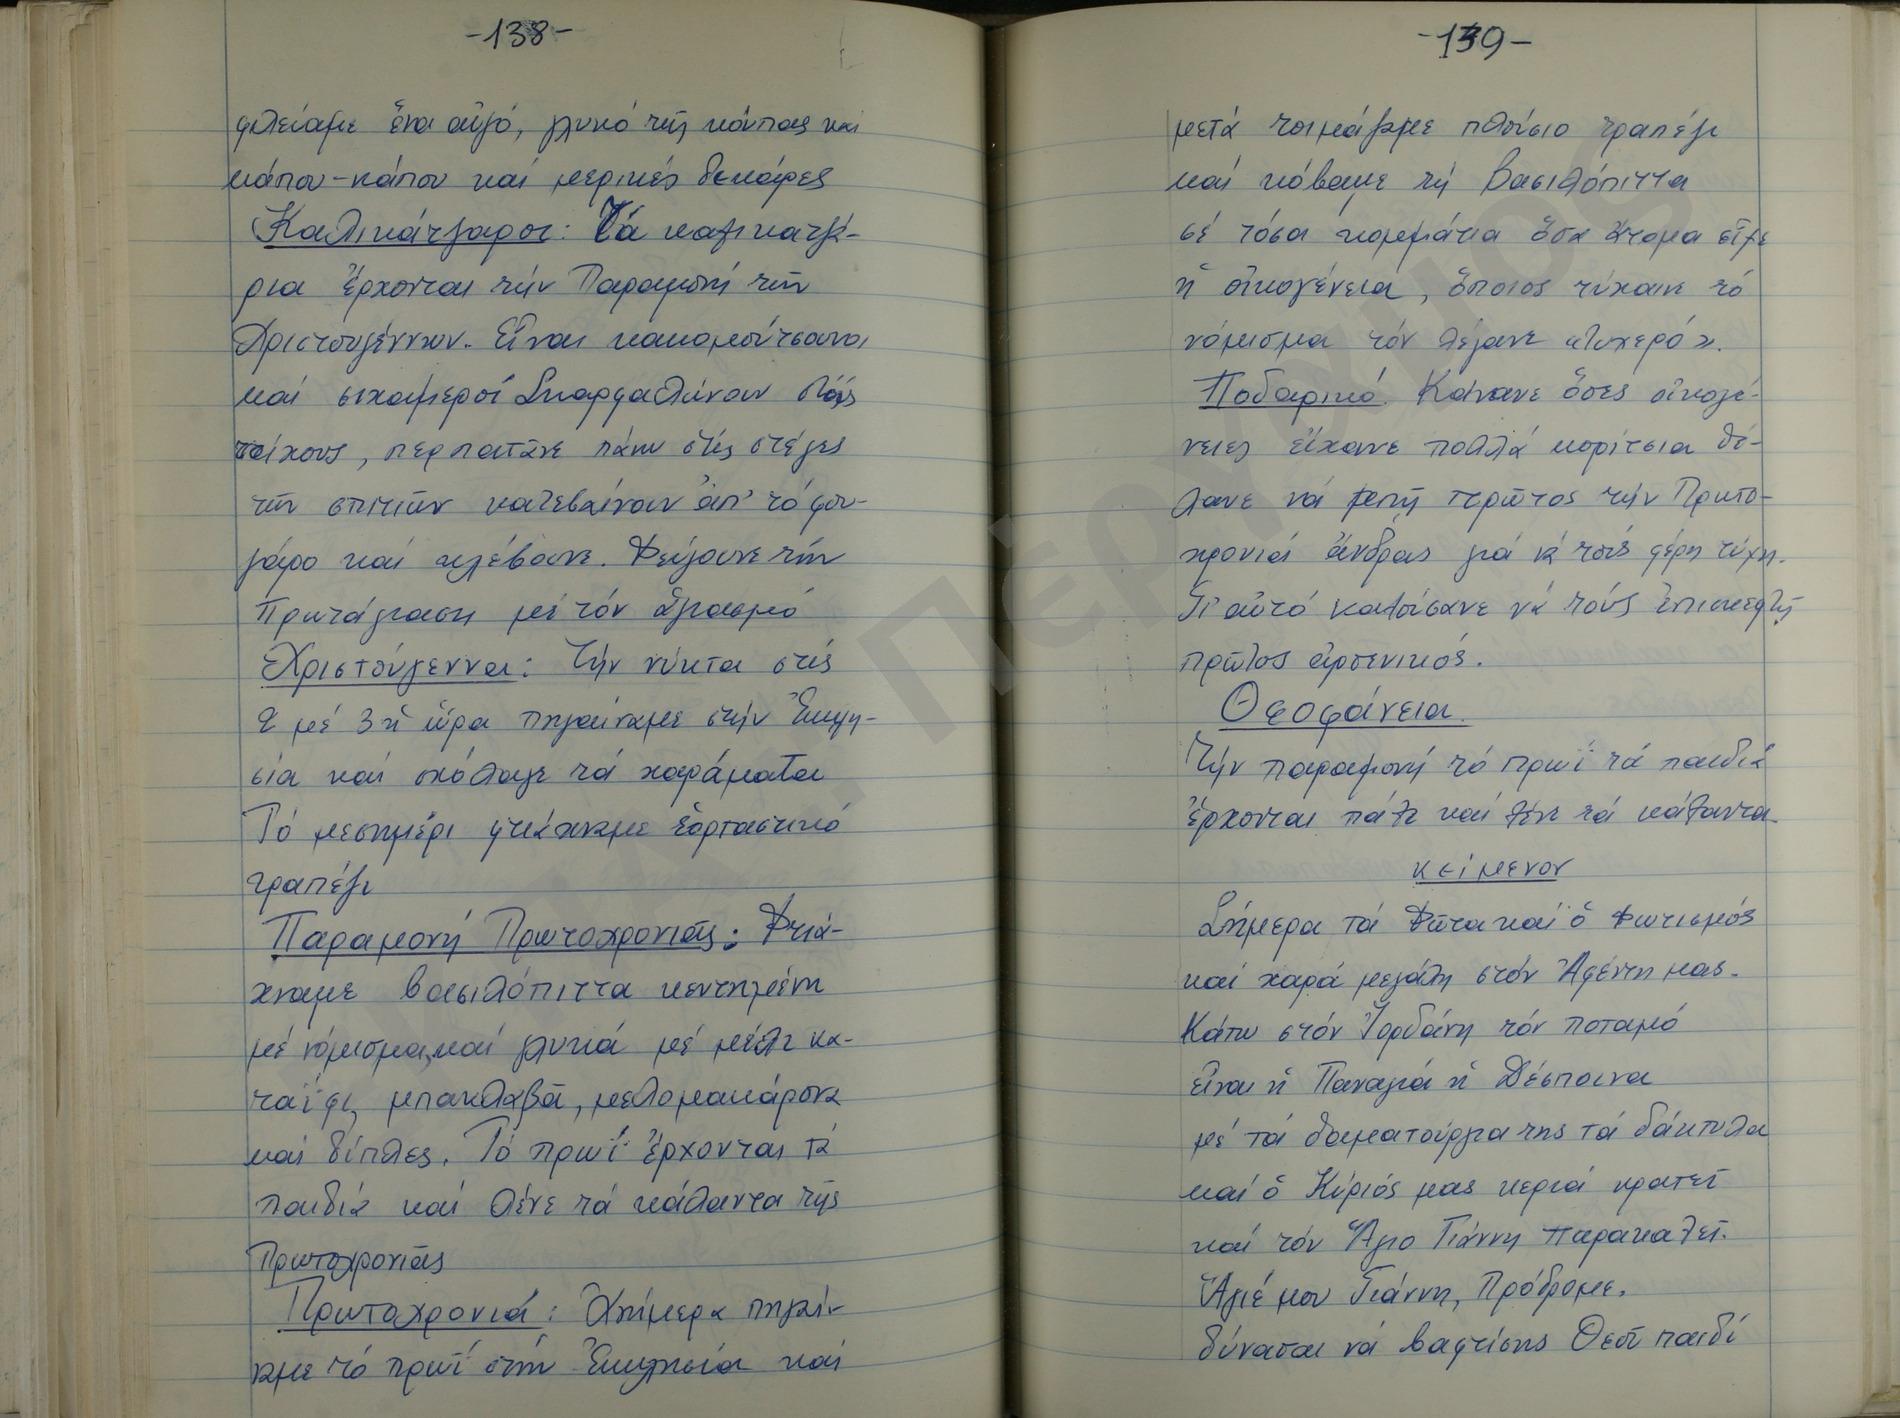 -138-
φιλείαμε ἕνα αὐγό, γλυκό τῆς κούπας καί
κάπου-κάπου καί μερικές δεκάρες
Καλικάτζαροι: Τά καλικατζά-
ρια ἔρχονται τήν Παραμονή τῶν
Χριστουγέννων. Εἶναι κακομούτσουνοι
καί σιχαμεροί Σκαρφαλώνουν στούς
τοίχους, περπατᾶνε πάνω στίς στέγες
τῶν σπιτιῶν κατεβαίνουν ἀπ' τό φου-
γάρο καί κλέβουνε. Φεύγουνε τήν
Πρωτάγιαση μέ τόν ἁγιασμό
Χριστούγεννα: Τήν νύκτα στίς
2 μέ 3 ἡ ὥρα πηγαίναμε στήν Ἐκκλη-
σία καί σχόλαγε τά χαράματα
Τό μεσημέρι φτιάχναμε ἑορταστικό
τραπέζι
Παραμονή Πρωτοχρονιᾶς: Φτιά-
χναμε βασιλόπιττα κεντημένη
μέ νόμισμα, καί γλυκά μέ μέλι κα-
ταΐφι, μπακλαβᾶ, μελομακάρονα
καί δίπλες. Τό πρωΐ ἔρχονται τά
παιδιά καί λένε τά κάλαντα τῆς
Πρωτοχρονιᾶς
Πρωτοχρονιά: Ἀνήμερα πηγαίν-
αμε τό πρωΐ στήν Ἐκκλησία καί
-139-
μετά τοιμάζαμε πλούσιο τραπέζι
καί κόβαμε τή βασιλόπιττα
σέ τόσα κομμάτια ὅσα ἄτομα εἶχε
ἡ οἰκογένεια, ὅποιος τύχαινε τό
νόμισμα τόν λέγανε «Τυχερό».
Ποδαρικό. Κάνανε ὅσες οἰκογέ-
νειες εἴχανε πολλά κορίτσια θέ-
λανε νά μπῆ πρῶτος τήν Πρωτο-
χρονιά ἄνδρας γιά νά τούς φέρη τύχη.
Γι' αὐτό καλούσανε νά τούς ἐπισκεφτῆ
πρῶτος ἀρσενικός.
Θεοφάνεια.
Τήν παραμονή τό πρωΐ τά παιδιά
ἔρχονται πάλι καί λένε τά κάλαντα.
κείμενον
Σήμερα τά Φῶτα καί ὁ Φωτισμός
καί χαρά μεγάλη στόν Ἀφέντη μας.
Κάτω στόν Ἰορδάνη τόν ποταμό
εἶναι ἡ Παναγιά ἡ Δέσποινα
μέ τά θαματούργια της τά δάκτυλα
καί ὁ Κύριός μας κεριά κρατεῖ
καί τόν Ἅγιο Γιάννη παρακαλεῖ.
Ἅγιέ μου Γιάννη, Πρόδρομε.
δύνασαι νά βαφτίσης Θεοῦ παιδί